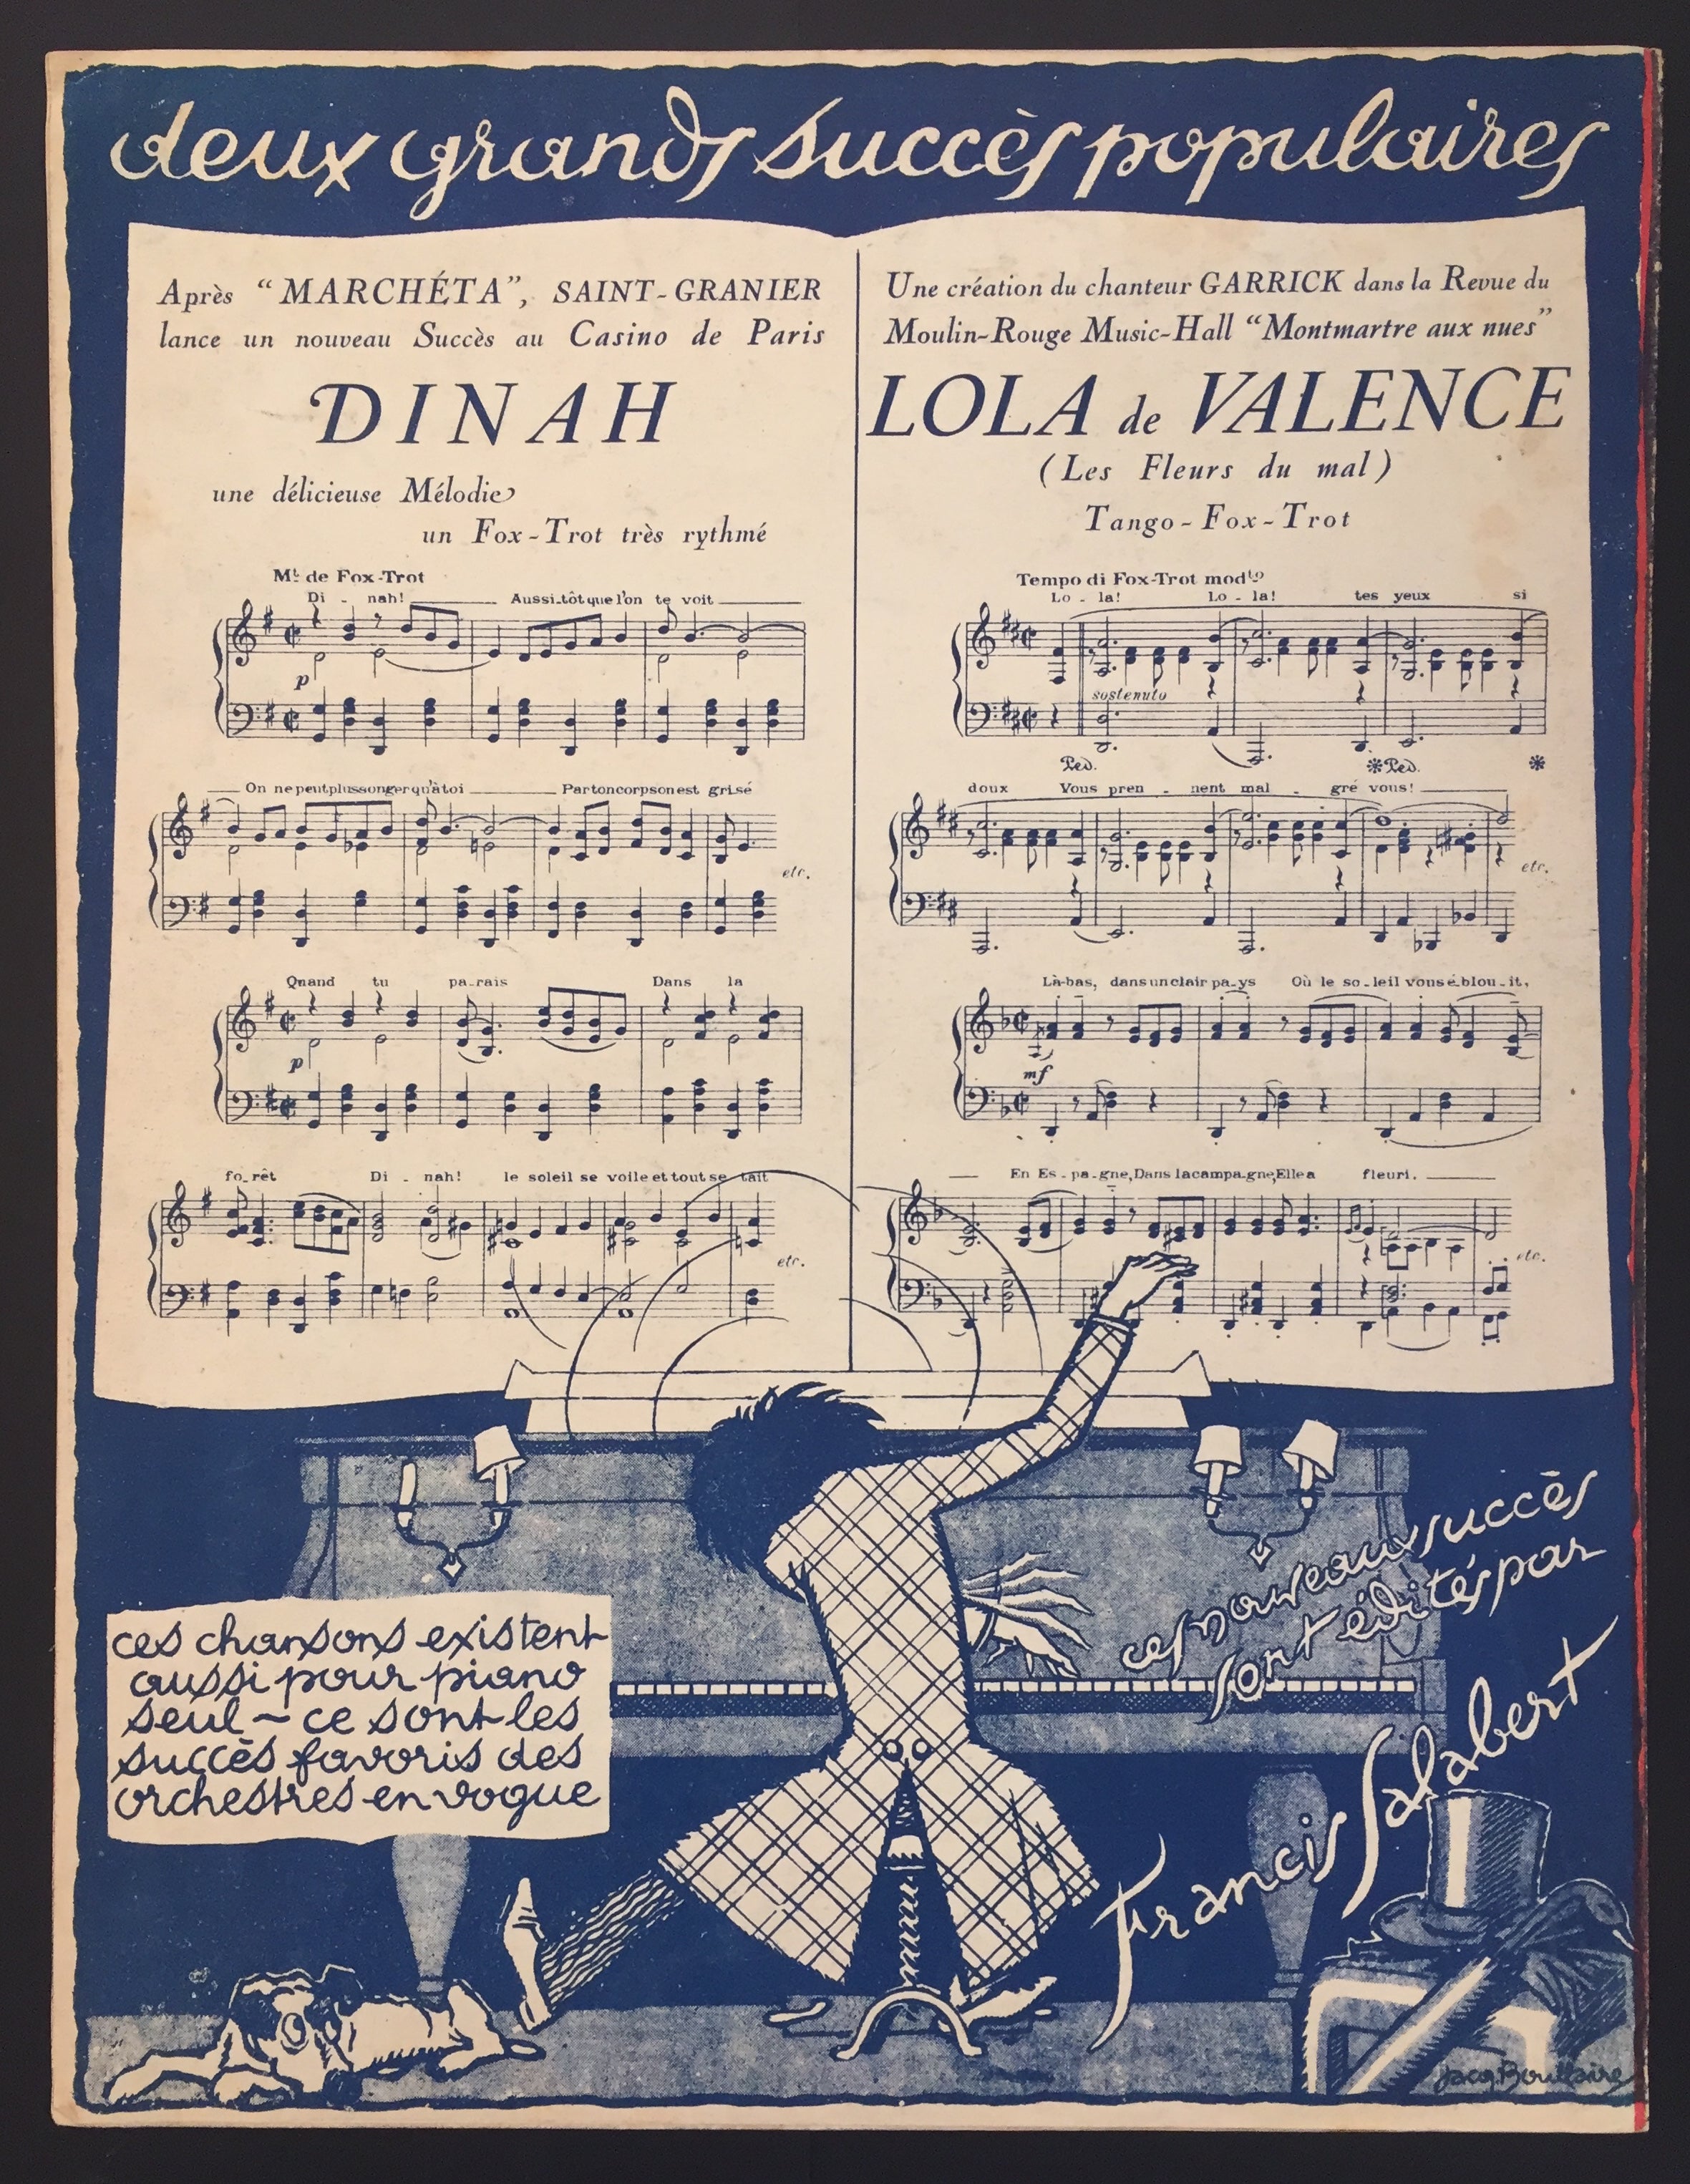 deux grands succès populaires
Après "MARCHÉTA", SAINT-GRANIER
lance un nouveau Succès au Casino de Paris
DINAH
une délicieuse Mélodie
un Fox-Trot très rythmé
Mt de Fox-Trot
Di - nah! Aussi-tôt que l'on te voit
p
On ne peut plus songer qu'à toi Par ton corps on est gri-sé
etc.
Quand tu pa-rais Dans la
p
fo-rêt Di - nah! le soleil se voile et tout se tait
etc.
Une création du chanteur GARRICK dans la Revue du
Moulin-Rouge Music-Hall "Montmartre aux nues"
LOLA de VALENCE
(Les Fleurs du mal)
Tango-Fox-Trot
Tempo di Fox-Trot modto
Lo - la! Lo - la! tes yeux si
sostenuto
Ped. Ped.
doux Vous pren - nent mal - gré vous!
etc.
Là-bas, dans un clair pa-ys Où le so-leil vous é-blou-it,
mf
En Es-pa-gne, Dans la campa-gne, Elle a fleuri.
etc.
ces chansons existent
aussi pour piano
seul ~ ce sont les
succès favoris des
orchestres en vogue
ces nouveaux succès
sont édités par
Francis Salabert
Jacq. Boullaire